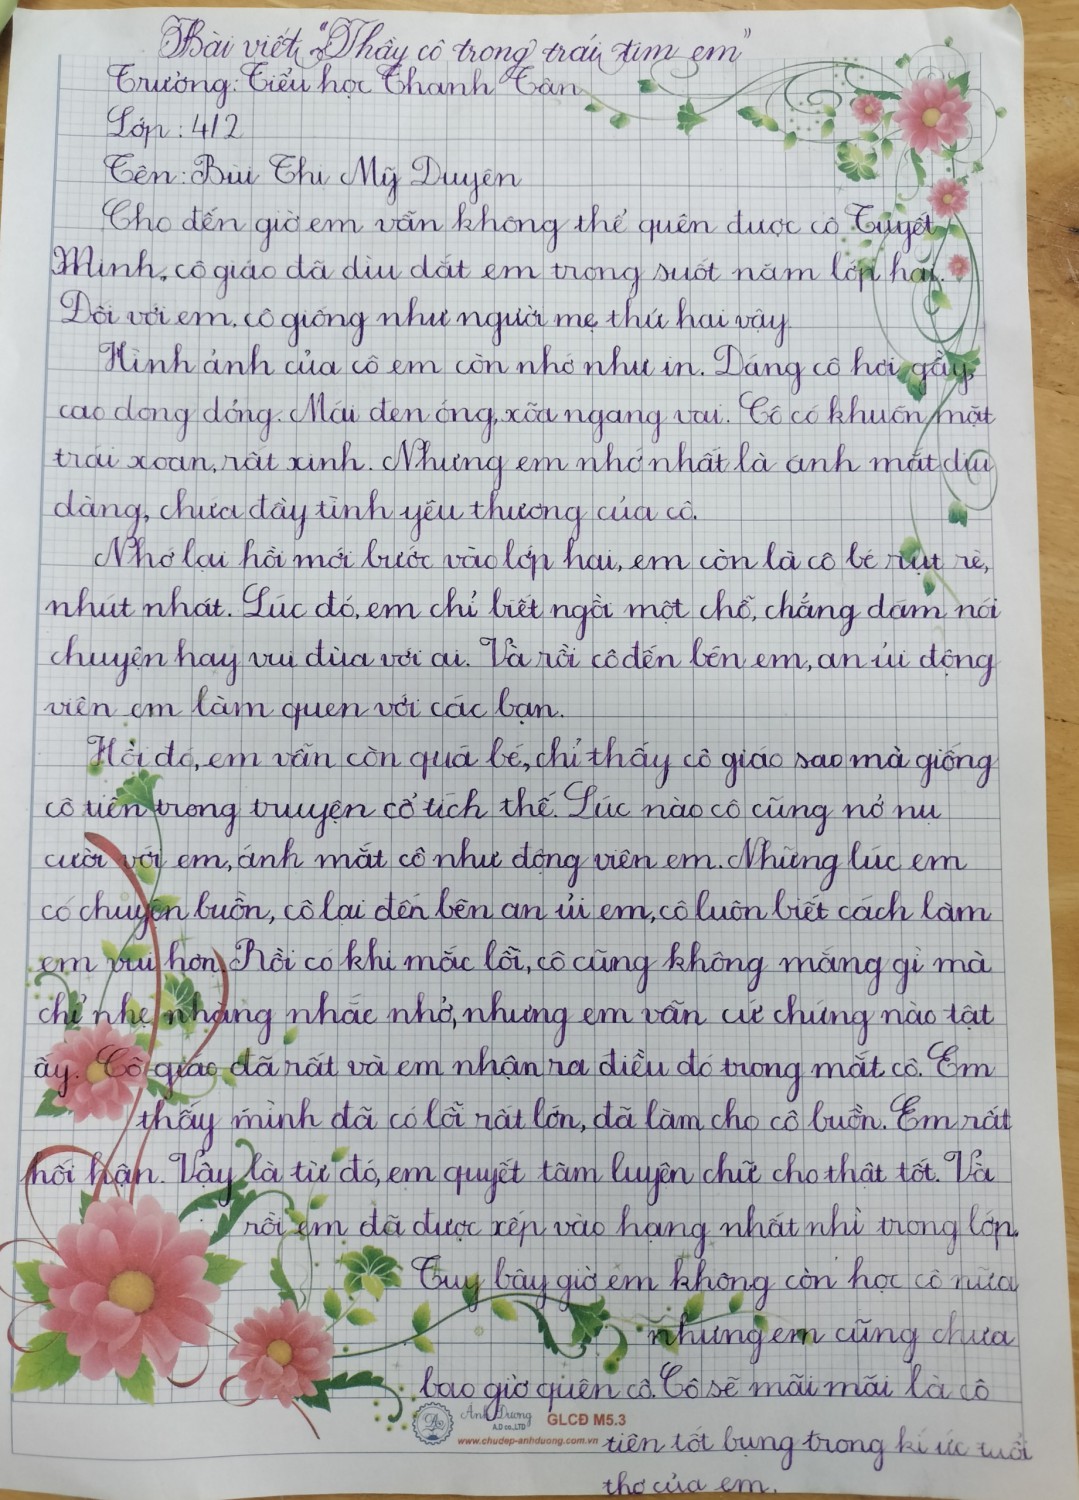 Bài viết "Thầy cô trong trái tim em"
Trường: Tiểu học Thanh Tân
Lớp: 4/2
Tên: Bùi Thị Mỹ Duyên
Cho đến giờ em vẫn không thể quên được cô Tuyết
Minh, cô giáo đã dìu dắt em trong suốt năm lớp hai.
Đối với em, cô giống như người mẹ thứ hai vậy.
Hình ảnh của cô em còn nhớ như in. Dáng cô hơi gầy,
cao dong dỏng. Mái đen óng, xõa ngang vai. Cô có khuôn mặt
trái xoan, rất xinh. Nhưng em nhớ nhất là ánh mắt dịu
dàng, chứa đầy tình yêu thương của cô.
Nhớ lại hồi mới bước vào lớp hai, em còn là cô bé rụt rè,
nhút nhát. Lúc đó, em chỉ biết ngồi một chỗ, chẳng dám nói
chuyện hay vui đùa với ai. Và rồi cô đến bên em, an ủi động
viên em làm quen với các bạn.
Hồi đó, em vẫn còn quá bé, chỉ thấy cô giáo sao mà giống
cô tiên trong truyện cổ tích thế. Lúc nào cô cũng nở nụ
cười với em, ánh mắt cô như động viên em. Những lúc em
có chuyện buồn, cô lại đến bên an ủi em, cô luôn biết cách làm
em vui hơn. Rồi có khi mắc lỗi, cô cũng không mắng gì mà
chỉ nhẹ nhàng nhắc nhở, nhưng em vẫn cứ chứng nào tật
ấy. Cô giáo đã rất và em nhận ra điều đó trong mắt cô. Em
thấy mình đã có lỗi rất lớn, đã làm cho cô buồn. Em rất
hối hận. Vậy là từ đó, em quyết tâm luyện chữ cho thật tốt. Và
rồi em đã được xếp vào hạng nhất nhì trong lớp.
Tuy bây giờ em không còn học cô nữa
nhưng em cũng chưa
bao giờ quên cô. Cô sẽ mãi mãi là cô
Ánh Dương
A.D co.,LTD
GLCĐ M5.3
www.chudep-anhduong.com.vn
tiên tốt bụng trong kí ức tuổi
thơ của em.